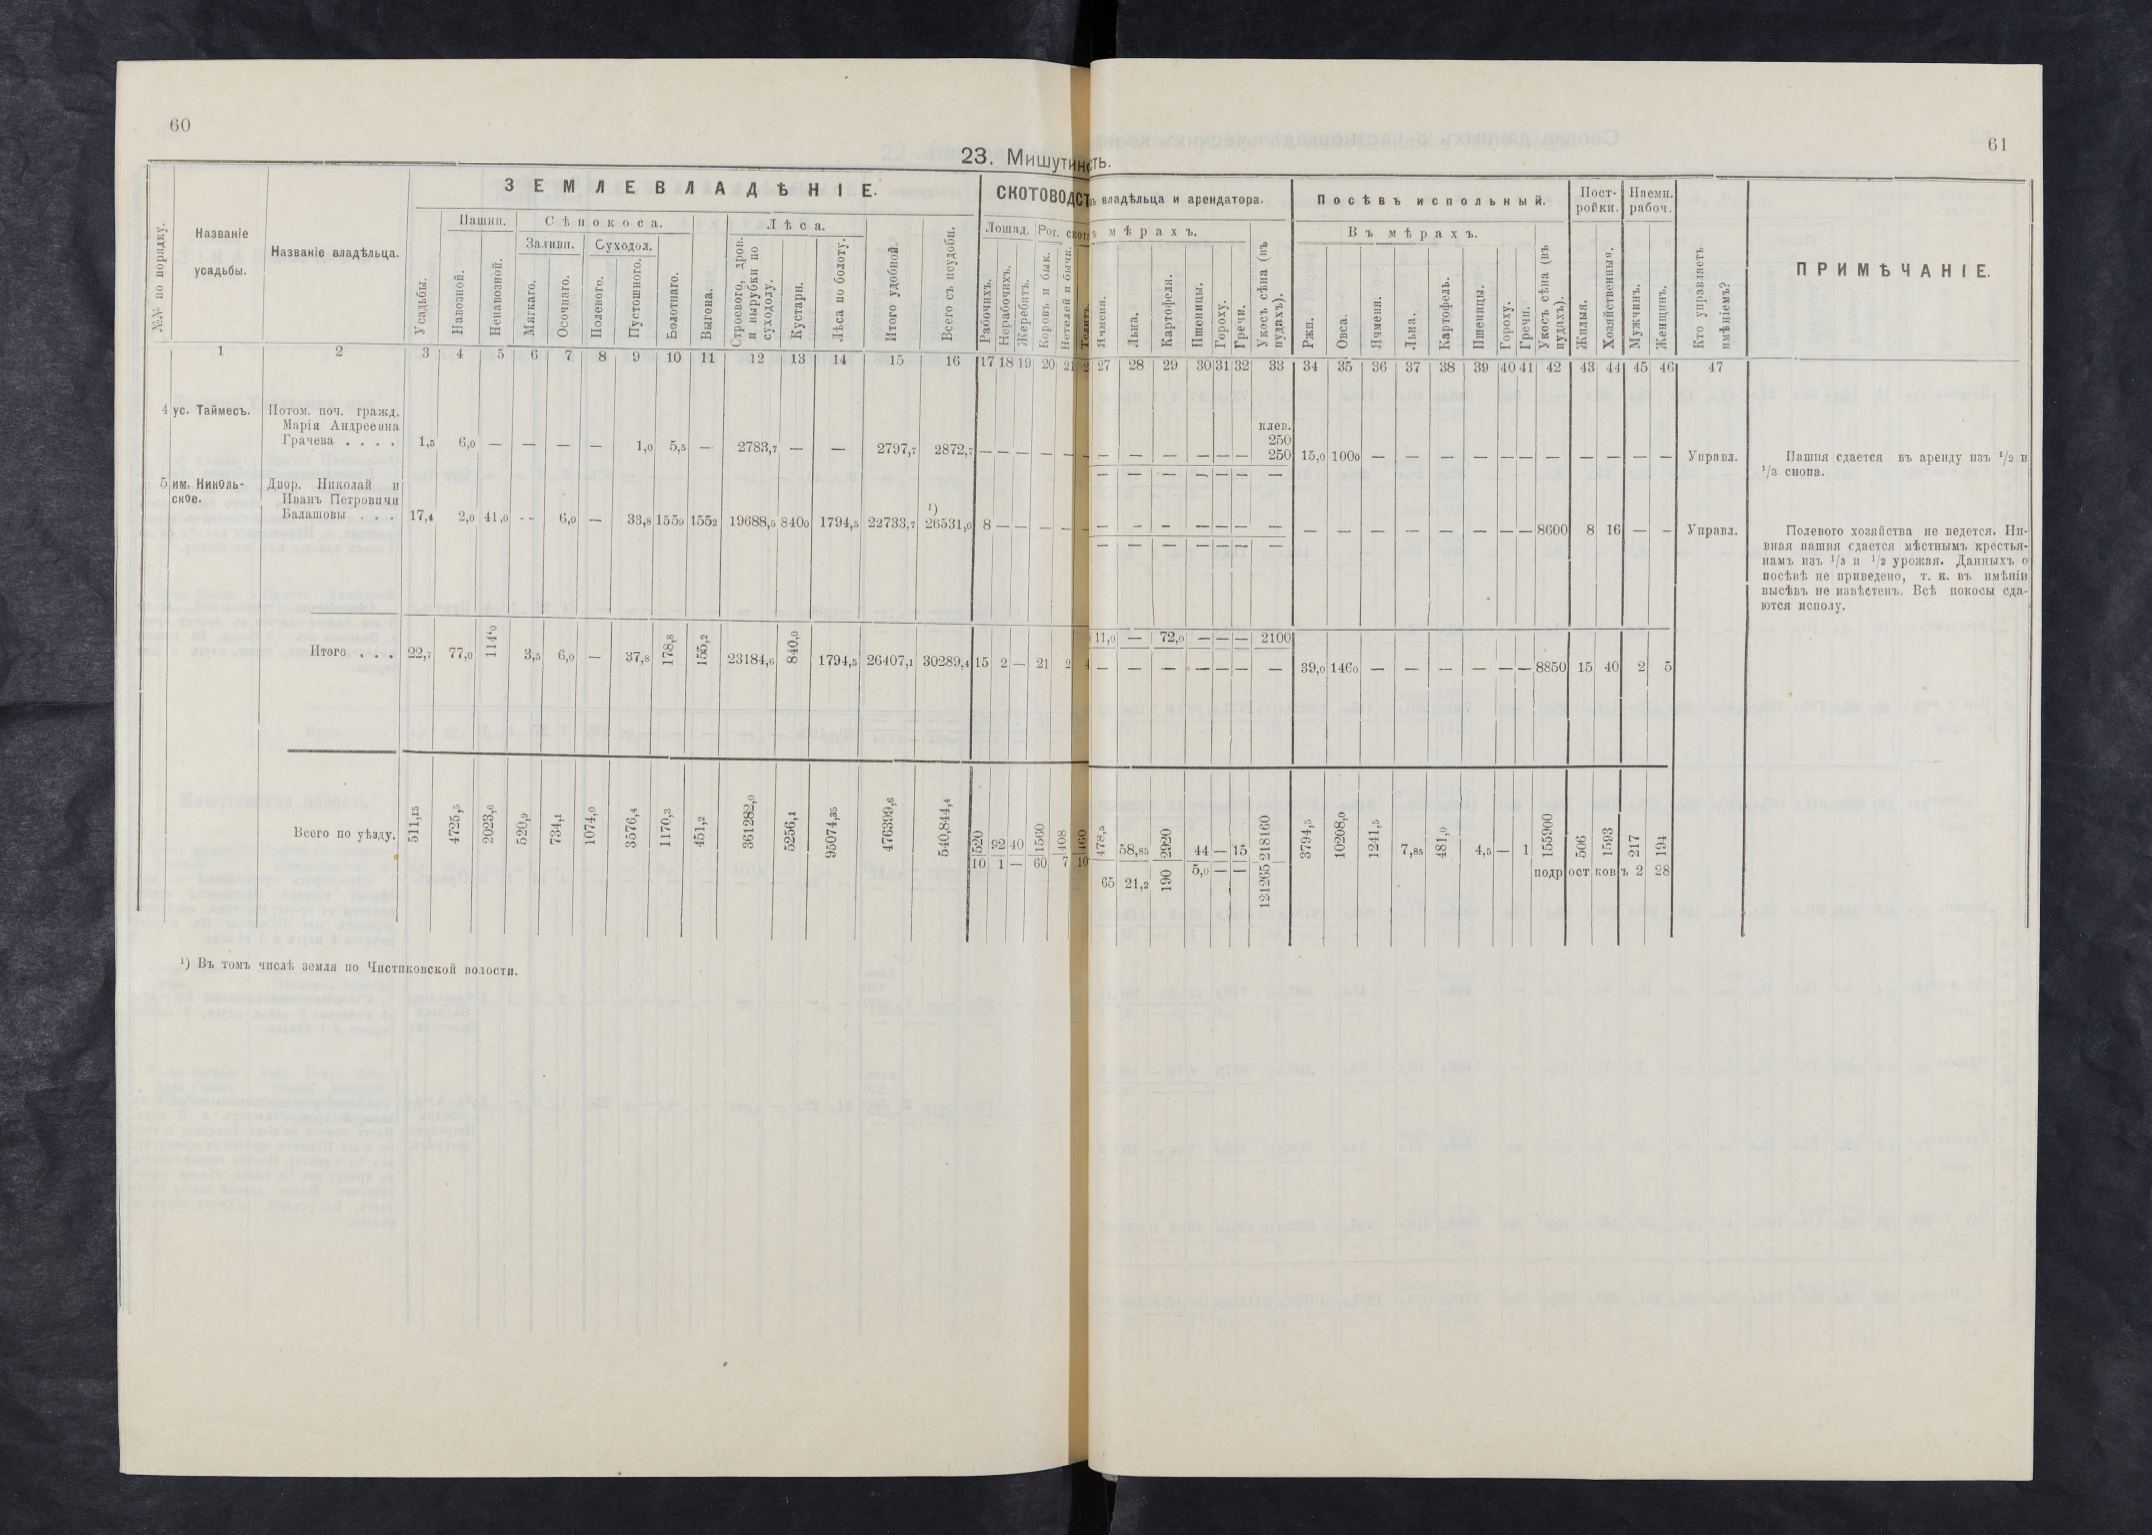 60
61
23. Мишутин сть.
№№ по порядку.
Названіе усадьбы.
Названіе владѣльца.
ЗЕМЛЕВЛАДѢНІЕ.
Усадьбы.
Пашни.
Навозной.
Ненавозной.
Сѣнокоса.
Заливн.
Мягкаго.
Осочнаго.
Суходол.
Полевого.
Пустошного.
Болотнаго.
Выгона.
Лѣса.
Строевого, дров. и вырубки по суходолу.
Кустарн.
Лѣса по болоту.
Итого удобной.
Всего съ неудобн.
СКОТОВОДСТ
Лошад.
Рабочихъ.
Нерабочихъ.
Жеребятъ.
Рог. скота
Коровъ и бык.
Нетелей и бычк.
Телятъ.
ъ владѣльца и арендатора.
ъ мѣрахъ.
Ячменя.
Льна.
Картофеля.
Пшеницы.
Гороху.
Гречи.
Укосъ сѣна (въ пудахъ).
Посѣвъ испольный.
Въ мѣрахъ.
Ржи.
Овса.
Ячменя.
Льна.
Картофель.
Пшеницы.
Гороху.
Гречи.
Укосъ сѣна (въ пудахъ).
Постройки.
Жилыя.
Хозяйственныя.
Наемн. рабоч.
Мужчинъ.
Женщинъ.
Кто управляетъ имѣніемъ?
ПРИМѢЧАНІЕ.
1 2 3 4 5 6 7 8 9 10 11 12 13 14 15 16 17 18 19 20 21 2 27 28 29 30 31 32 33 34 35 36 37 38 39 40 41 42 43 44 45 46 47
4 ус. Таймесъ. Потом. поч. гражд.
Марія Андреевна
Грачева . . . . 1,5 6,0 — — — — 1,0 5,5 — 2783,7 — — 2797,7 2872,7 — — — — — —
клев.
250
— — — — — — 250 15,0 1000 — — — — — — — — — — — Управл. Пашня сдается въ аренду изъ 1/2 и
— — — — — — — 1/3 снопа.
5 им. Николь- Двор. Николай и
ское. Иванъ Петровичи
Балашовы . . . 17,4 2,0 41,0 - - 6,0 — 33,8 1559 1552 19688,5 8400 1794,5 22733,7 1) 26531,0 8 — — — — —
— — — — — — — — — — — — — — — 8600 8 16 — — Управл. Полевого хозяйства не ведется. Нив-
— — — — — — — ная пашня сдается мѣстнымъ крестья-
намъ изъ 1/3 и 1/2 урожая. Данныхъ о
посѣвѣ не приведено, т. к. въ имѣніи
высѣвъ не извѣстенъ. Всѣ покосы сда-
ются исполу.
Итого . . . 22,7 77,0 114,0 3,5 6,0 — 37,8 178,8 155,2 23184,6 840,0 1794,5 26407,1 30289,4 15 2 — 21 2 4
11,0 — 72,0 — — — 2100
— — — — — — — 39,0 1460 — — — — — — 8850 15 40 2 5
Всего по уѣзду. 511,15 4725,5 2023,6 520,9 734,1 1074,0 3576,4 1170,3 451,2 361282,0 5256,1 95074,35 476399,6 540,844,4 520 92 40 1560 408 460
10 1 — 60 7 10
478,5 58,85 2920 44 — 15 218160 3794,5 10208,0 1241,5 7,85 481,0 4,5 — 1 155900 506 1593 217 194
65 21,2 190 5,0 — — 121265 подростковъ 2 28
1) Въ томъ числѣ земля по Чистиковской волости.